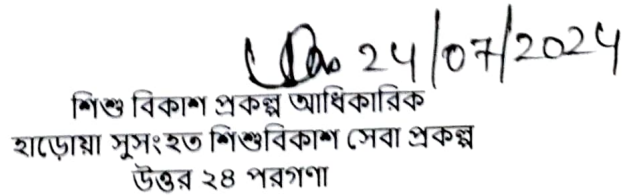 24/07/2024
শিশু বিকাশ প্রকল্প আধিকারিক
হাড়োয়া সুসংহত শিশুবিকাশ সেবা প্রকল্প
উত্তর ২৪ পরগণা